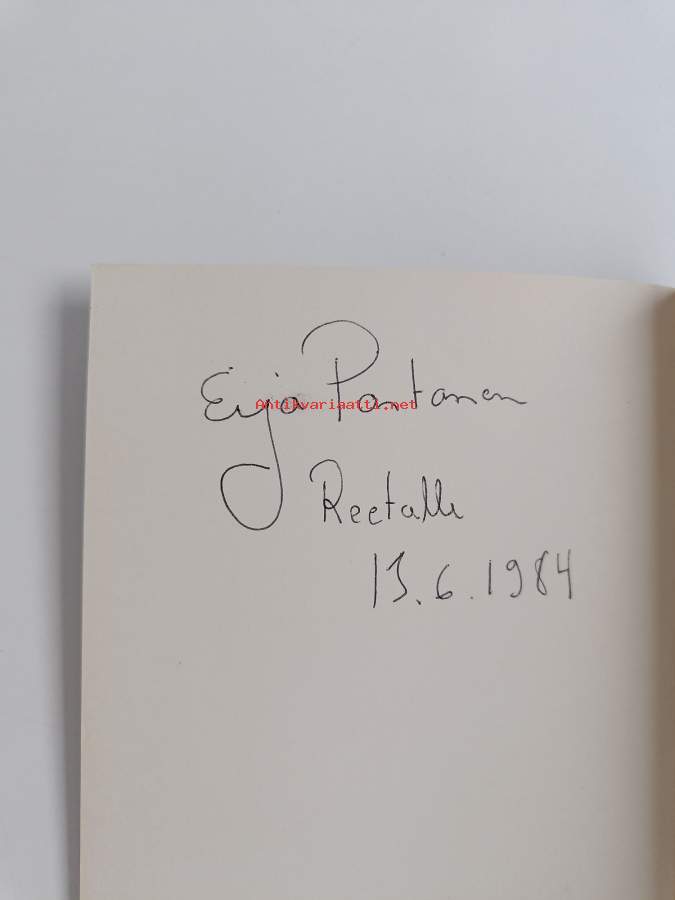 Eija Pantanen
Antikvariaatti.net
Reetalle
13.6.1984